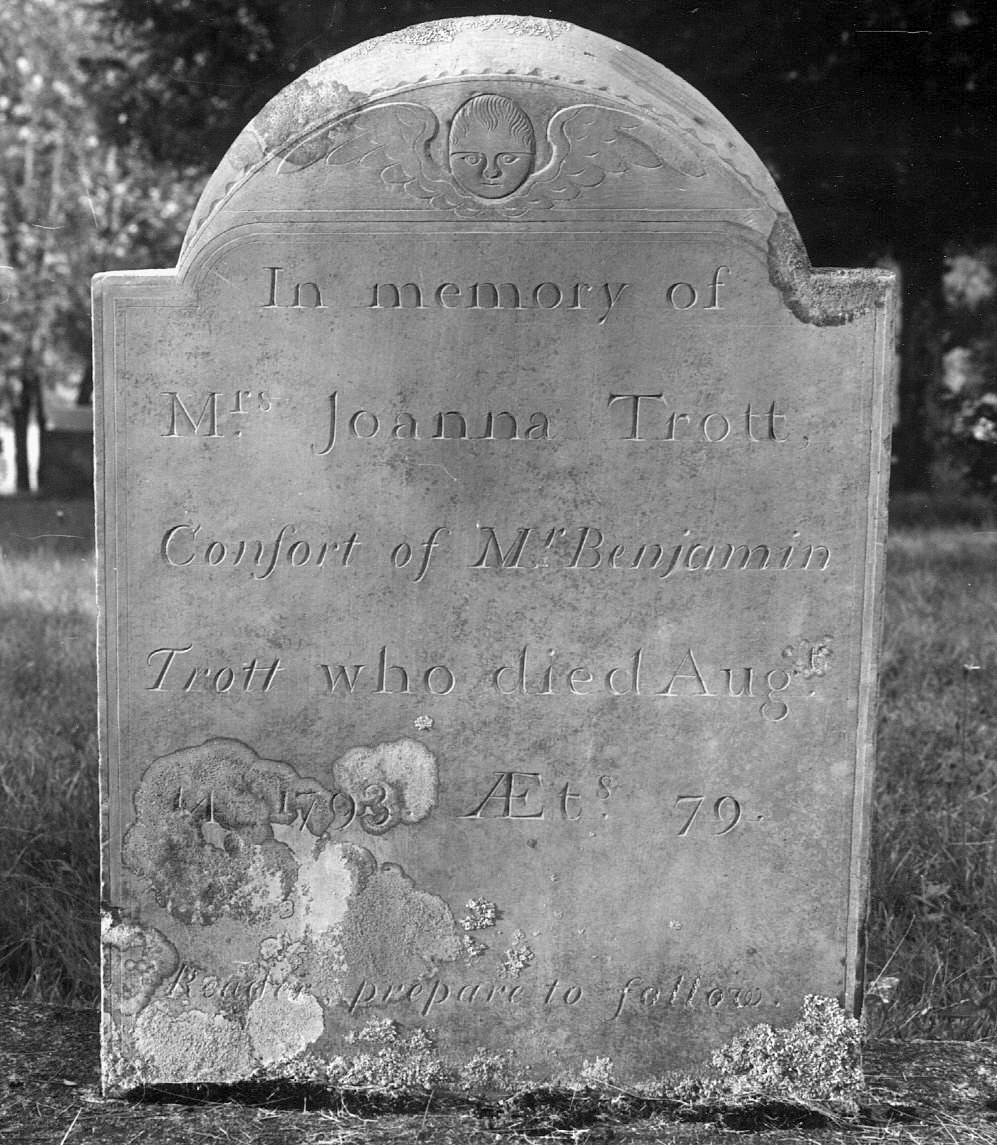 In memory of
Mrs. Joanna Trott,
Conſort of Mr. Benjamin
Trott who died Augt.
14 1793 Æts. 79.
Reader, prepare to follow.